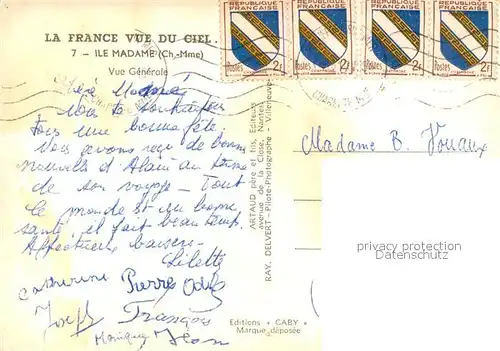 LA FRANCE VUE DU CIEL
7 - ILE MADAME (Ch.-Mme)
Vue Générale
REPUBLIQUE FRANCAISE REPUBLIQUE FRANCAISE REPUBLIQUE FRANCAISE REPUBLIQUE FRANCAISE
Postes 2f Postes 2f Postes 2f Postes 2f
vous souhaiter
tous une bonne fête.
Nous avons reçu de bonnes
nouvelles d'Alain au
de son voyage - Tout
le monde est en bonne
santé, il fait beau temps.
Affectueux baisers -
Lilette
Catherine Pierre Odile
Joseph François
Monique Jean
ARTAUD père et fils, Editeurs
avenue de la Close, Nantes
RAY. DELVERT - Pilote-Photographe - Villeneuve
Editions "GABY"
Marque déposée
Madame B. Vouaux
privacy protection
Datenschutz